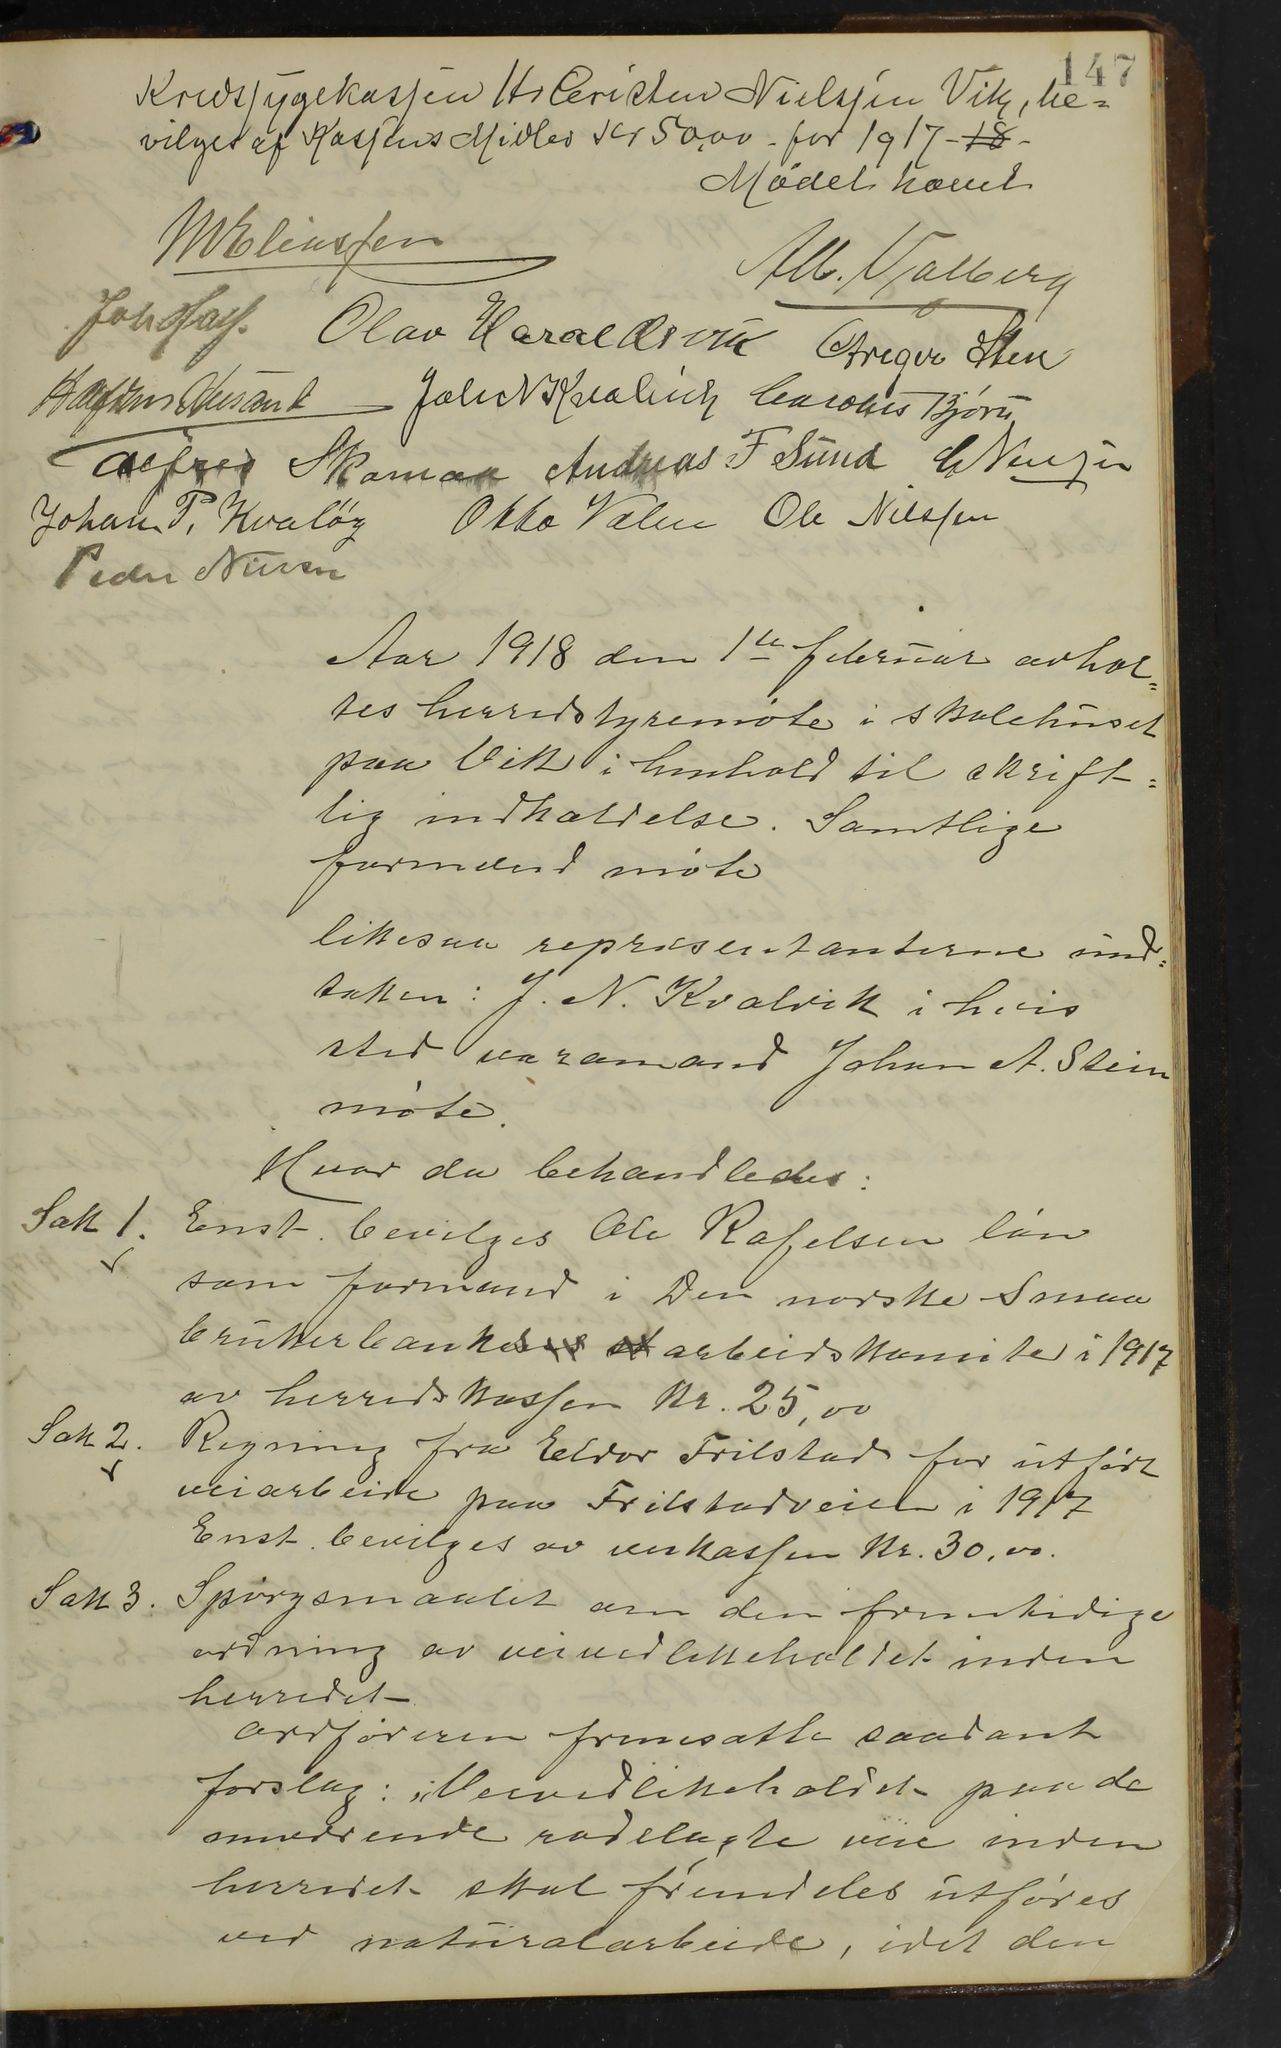 147
Kredssygekassen Hr Cristen Nielssen Vik, be-
vilges af Kassens Midler Kr 50,00 - for 1917-18-
Mødet hævet
M Eliassen
Alb. Valberg
Olav Haraldsvik
Sten
John N Kvalvik
Alfred Skomaa Andreas F Sund
Johan P. Kvaløy Otto Valen Ole Nilssen
Peder
Aar 1918 den 1ste februar avhol-
tes herredstyremøte i skolehuset
paa Vik i henhold til skrift-
lig indkaldelse. Samtlige
formænd møte
likesaa repræsentanterne und-
taken: J. N. Kvalvik i hvis
sted varamand Johan A. Stein
møte.
Hvor da behandledes:
Sak 1. Enst. bevilges Ole Rafelsen løn
som formand i Den norske Smaa
brukerbankens arbeidskomite i 1917
av herredskassen Kr. 25,00
Sak 2. Regning fra Eldor Trilstad for utført
veiarbeide paa Trilstadveien i 1917
Enst. bevilges av veikassen Kr. 30,00.
Sak 3. Spørgsmaalet om den fremtidige
ordning av veivedlikeholdet inden
herredet.
Ordføreren fremsatte saadant
forslag: "Veivedlikeholdet paa de
nuværende rodelagte veie inden
herredet skal fremdeles utføres
ved naturalarbeide, idet den